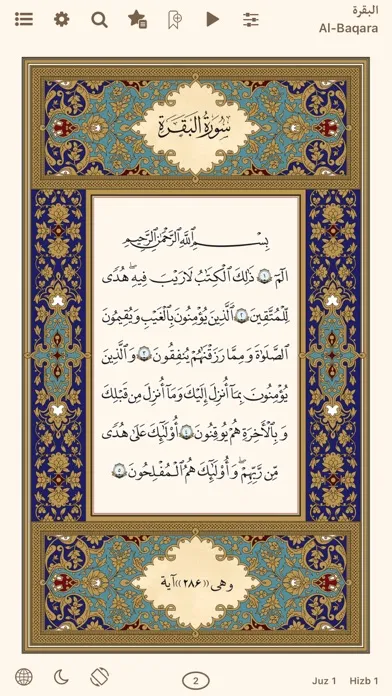 البقرة
Al-Baqara
سُورَةُ الْبَقَرَةِ
بِسْمِ اللَّهِ الرَّحْمَٰنِ الرَّحِيمِ
الٓمٓ ۝١ ذَٰلِكَ الْكِتَٰبُ لَا رَيْبَ فِيهِ ۛ هُدًى
لِلْمُتَّقِينَ ۝٢ الَّذِينَ يُؤْمِنُونَ بِالْغَيْبِ وَ يُقِيمُونَ
الصَّلَوٰةَ وَ مِمَّا رَزَقْنَٰهُمْ يُنْفِقُونَ ۝٣ وَ الَّذِينَ
يُؤْمِنُونَ بِمَآ أُنْزِلَ إِلَيْكَ وَ مَآ أُنْزِلَ مِنْ قَبْلِكَ
وَ بِالْأَخِرَةِ هُمْ يُوقِنُونَ ۝٤ أُوْلَٰٓئِكَ عَلَىٰ هُدًى
مِنْ رَبِّهِمْ ۖ وَ أُوْلَٰٓئِكَ هُمُ الْمُفْلِحُونَ ۝٥
وهی ((۲۸۶)) آیة
2
Juz 1
Hizb 1